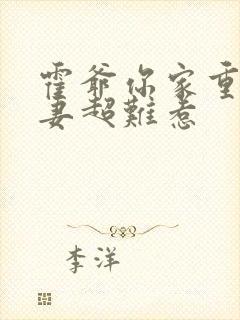 霍爷你家重
妻超難惹
李洋